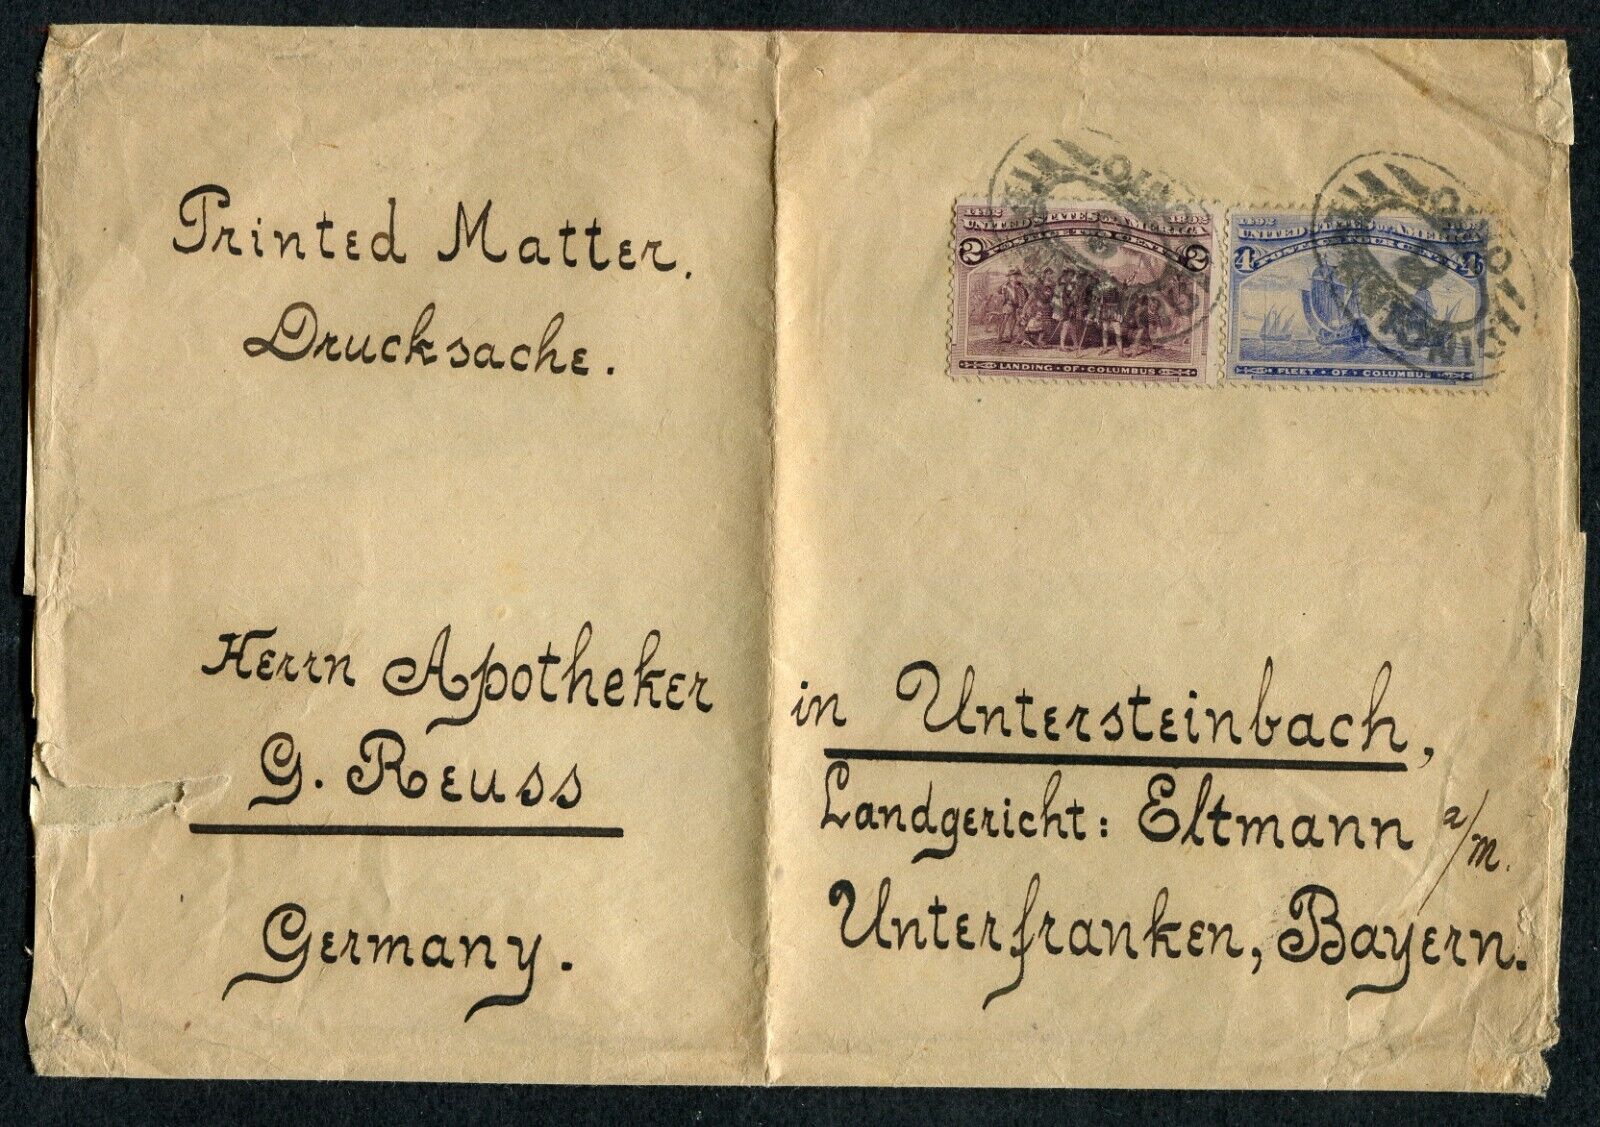 Printed Matter.
Drucksache.
1492 1892
UNITED STATES OF AMERICA
POSTAGE TWO CENTS
2 2
LANDING · OF · COLUMBUS
1492
UNITED STATES OF AMERICA
POSTAGE FOUR CENTS
4 4
FLEET · OF · COLUMBUS
Herrn Apotheker
G. Reuss
Germany.
in Untersteinbach,
Landgericht: Eltmann a/M.
Unterfranken, Bayern.